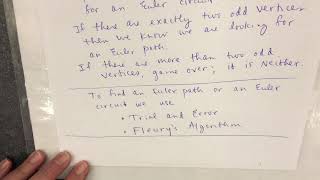 for an Euler circuit
If there are exactly two odd vertices
then we know we are looking for
an Euler path.
If there are more than two odd
vertices, game over; it is Neither.
To find an Euler path or an Euler
circuit we use
• Trial and Error
• Fleury's Algorithm